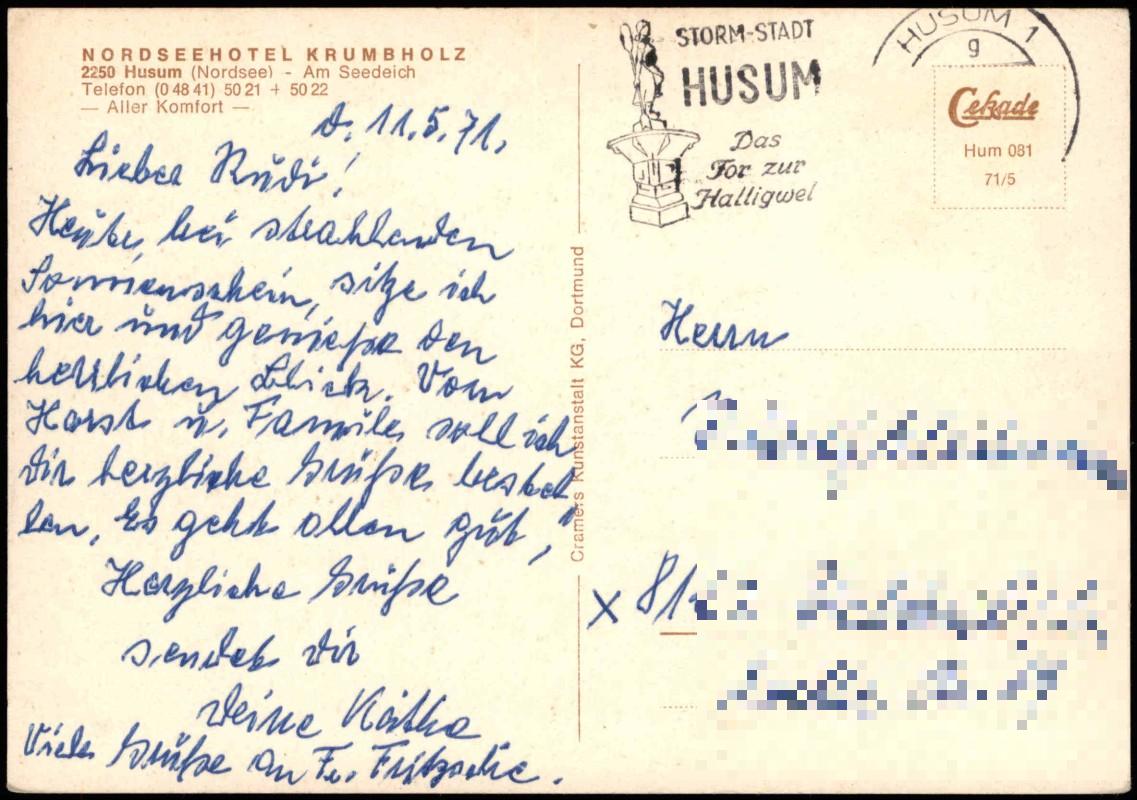 NORDSEEHOTEL KRUMBHOLZ
2250 Husum (Nordsee) - Am Seedeich
Telefon (0 48 41) 50 21 + 50 22
— Aller Komfort —
D. 11.5.71.
Lieber Rudi!
Heute, bei strahlenden
Sonnenschein, sitze ich
hier und genieße den
herrlichen Blick. Vom
Horst u. Familie soll ich
Dir herzliche Grüße bestel
len, Es geht allen gut,
Herzliche Grüße
sendet Dir
Deine Käthe
Viele Grüße an Fr. Fritzsche.
Cramers Kunstanstalt KG, Dortmund
STORM-STADT
HUSUM
Das
Tor zur
Halligwel
HUSUM 1
g
Cekade
Hum 081
71/5
Herrn
x 81